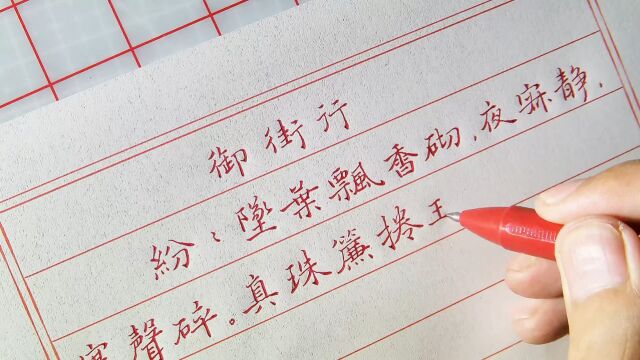 御街行
紛〻墜葉飄香砌，夜寂静，
寒聲碎。真珠簾捲王